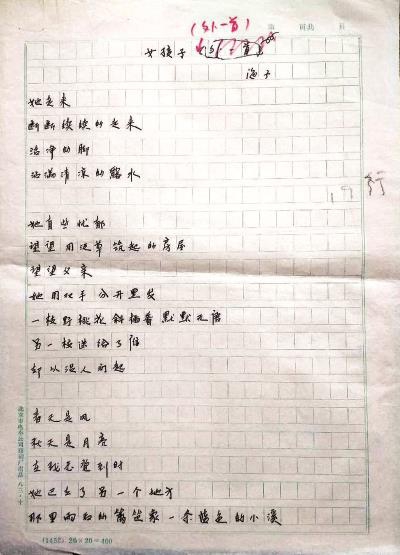 (外一首)
第 页共 页
女孩子
海子
她走来
断断续续的走来
洁净的脚
沾满清凉的露水
19行
她有些忧郁
望望用泥草筑起的房屋
望望父亲
她用双手分开黑发
一枝野桃花斜插着默默无语
另一枝送给了谁
却从没人问起
春天是风
秋天是月亮
在我感觉到时
她已去了另一个地方
那里雨后的篱笆象一条蓝色的小溪
北京市电车公司印刷厂出品 八三·十
(1452) 20×20=400